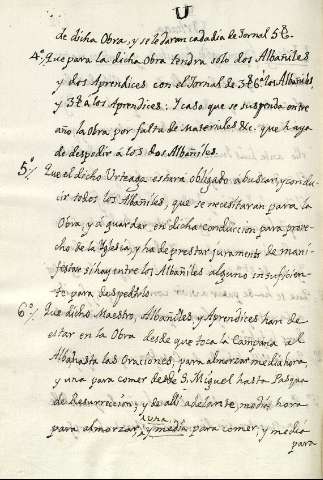 U
de dicha Obra, y se le daran cada dia de Jornal 5
4.º Que para la dicha Obra tendra solo dos Albañiles
y dos Aprendices con el Jornal de los Albañiles
y 3 a los Aprendices: Y caso que se suspenda entre
año la Obra por falta de Materiales &c. que haya
de despedir á los dos Albañiles.
5.º Que el dicho Urteaga estará obligado a buscar, y condu
cir todos los Albañiles, que se necesitaran para la
Obra, y á guardar en dicha conduccion para prove
cho de la Yglesia, y ha de prestar juramento de mani
festar si hay entre los Albañiles alguno insuficien
te para despedirlo
6.º Que dicho Maestro, Albañiles, y Aprendices han de
estar en la Obra desde que toca la Campana al
Alba hasta las Oraciones; para almorzar media hora,
y una para comer desde S. Miguel hasta Pasqua
de Resurreccion; y de alli adelante, media hora
para almorzar, una y media para comer, y media
para